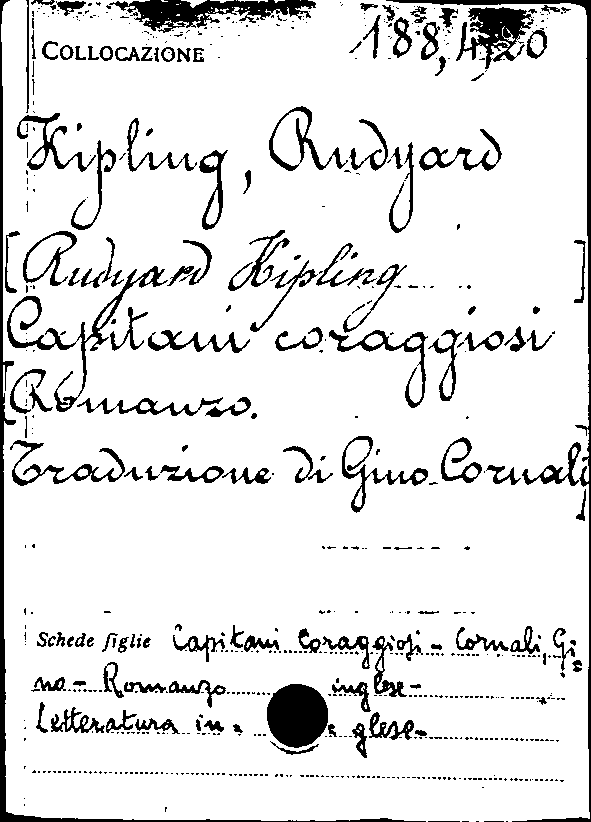 COLLOCAZIONE 188,4,20
Kipling, Rudyard
[Rudyard Kipling ]
Capitani coraggiosi
[Romanzo.
Traduzione di Gino Cornali]
Schede figlie Capitani Coraggiosi - Cornali, Gi=
no - Romanzo inglese -
Letteratura in= glese -